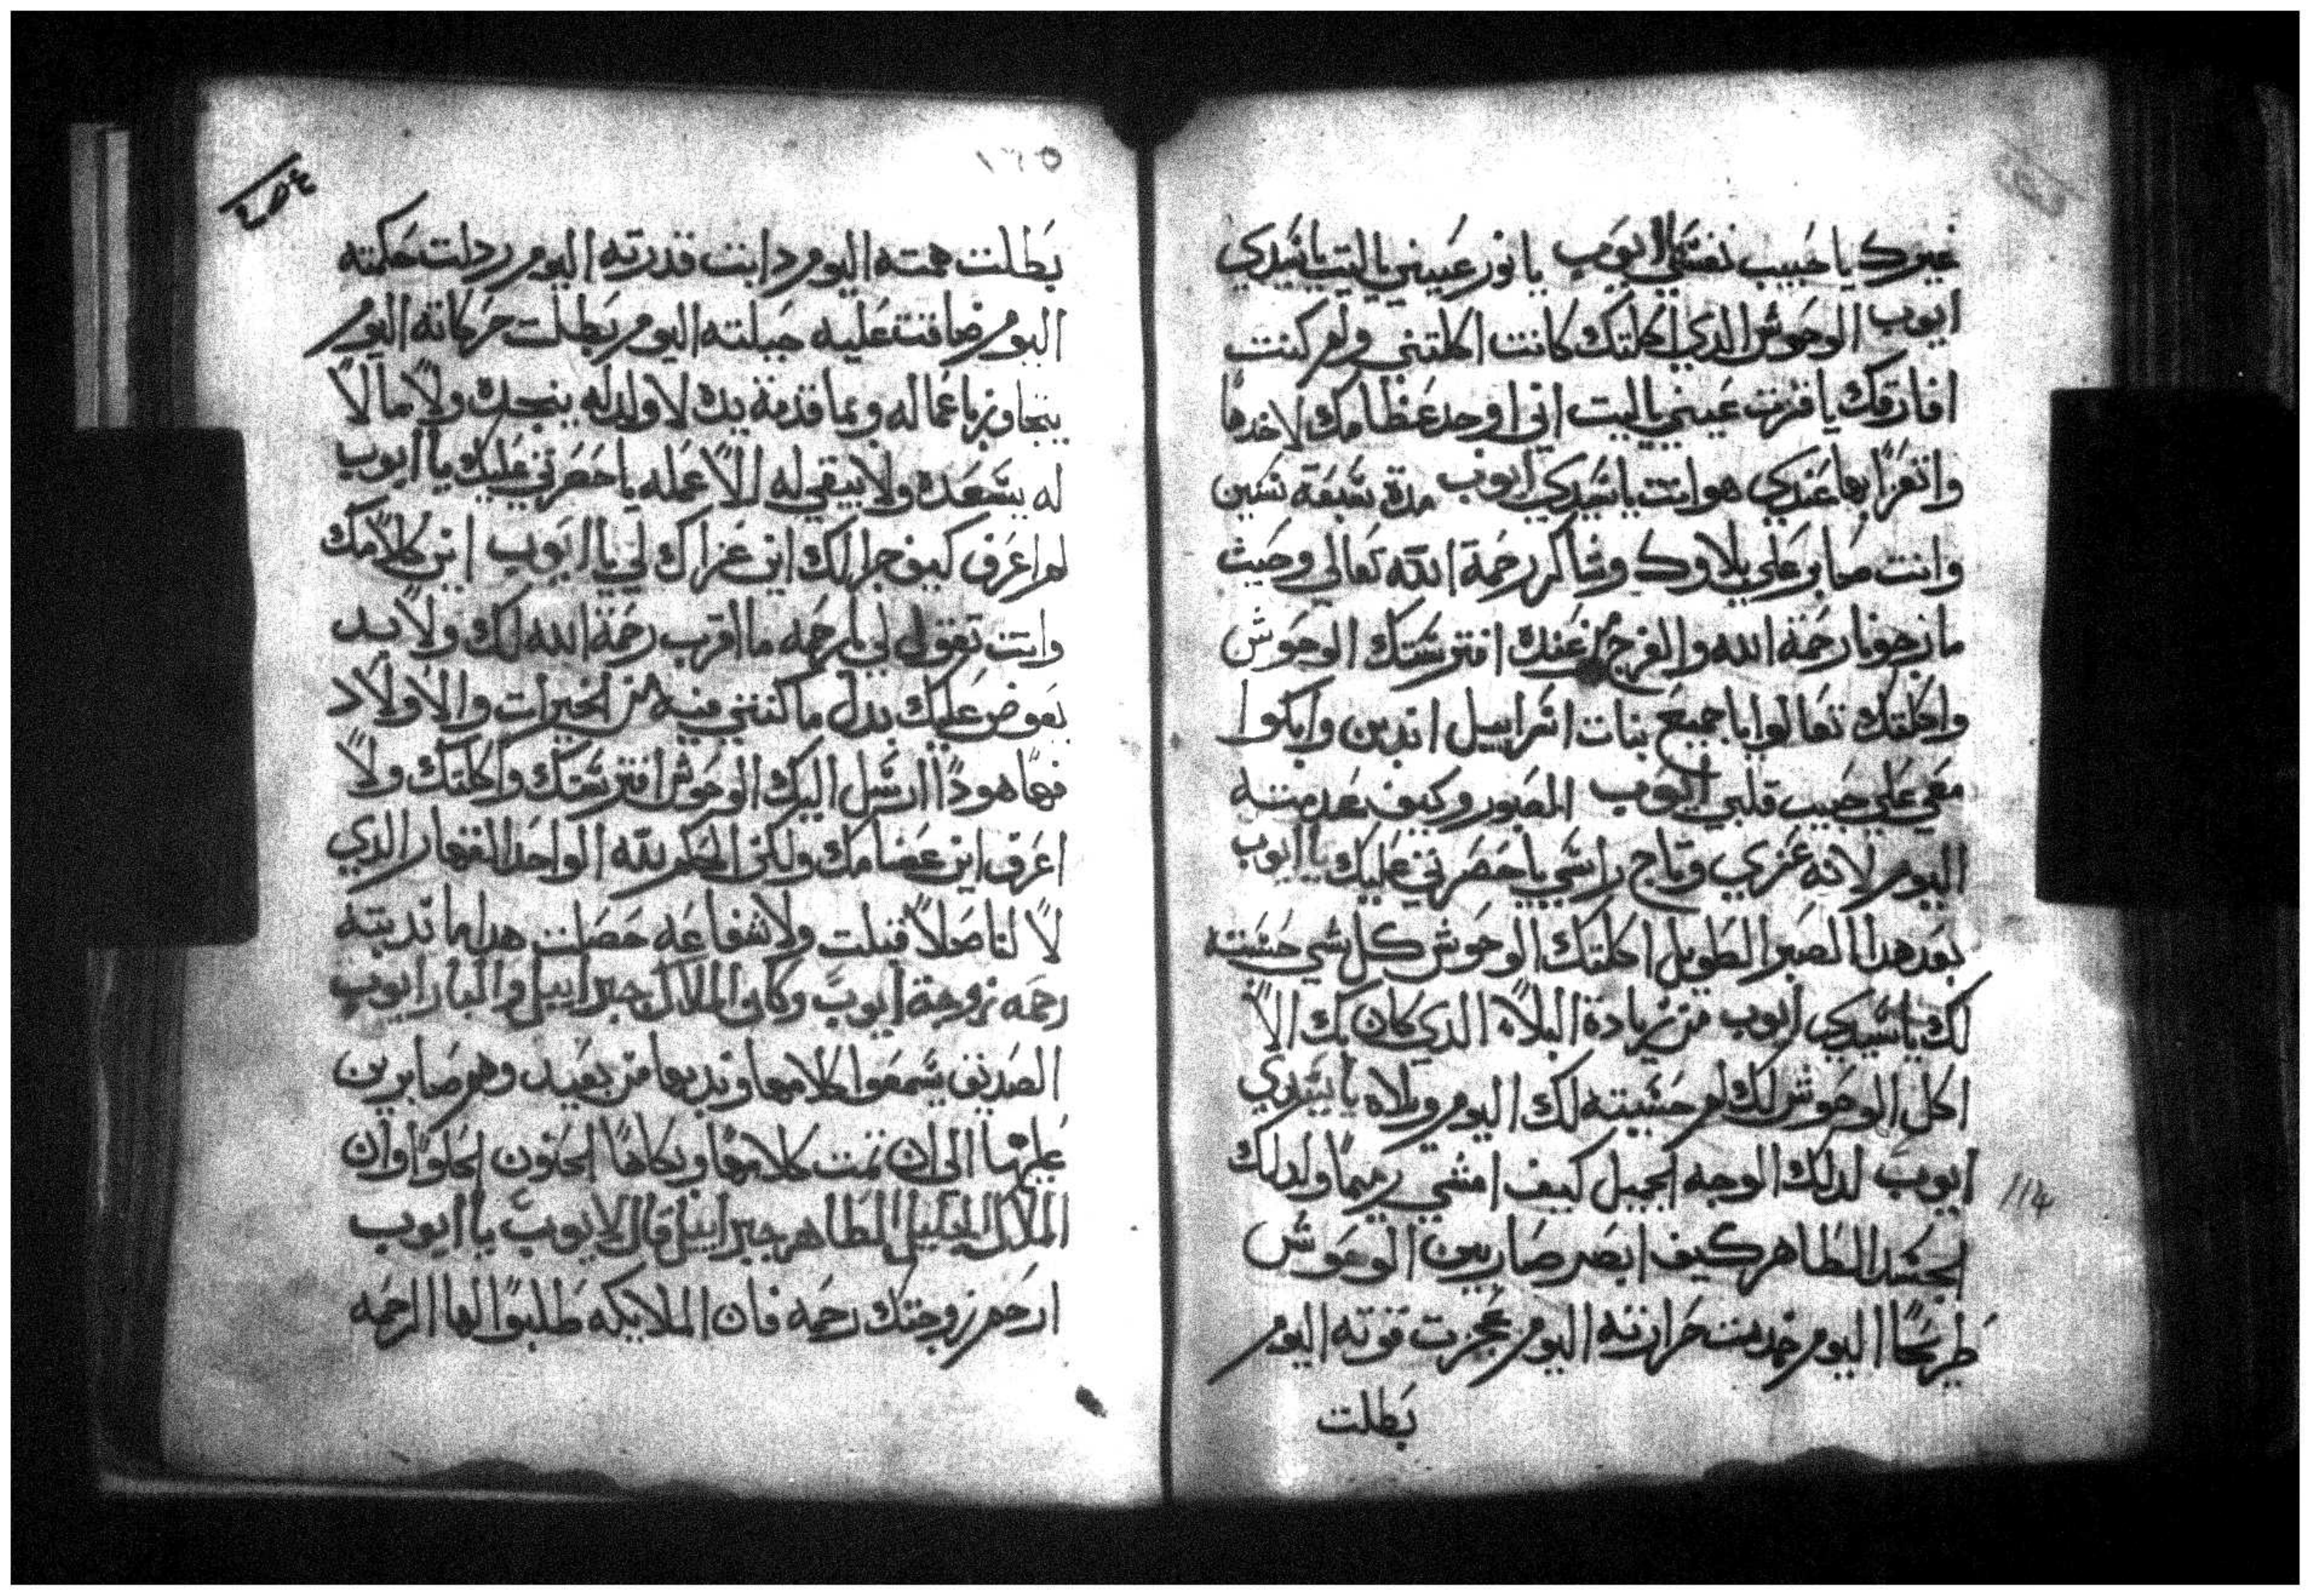 غيرك يا حبيب نفسي ايوب يا نور عييني ياليت ياسيدي
ايوب الوحوش الدي اكلتك كانت اكلتني ولم كنت
افارقك يا قرت عيني ياليت اني اوجد عظامك لاخدها
واتعزا بها عندي هو انت ياسيدي ايوب مدة سبعة سنين
وانت صابر علي بلاوك وشاكر رحمة الله تعالي وحيث
ما نرجونا رحمة الله والفرج من عنده افترستك الوحوش
واكلتك تعالوا يا جميع بنات اسراييل اندبن وابكوا
معي علي حبيب قلبي ايوب الصبور وكيف عدمته
اليوم لانه عزي وتاج راسي يا حصرتي عليك يا ايوب
بعد هدا الصبر الطويل اكلتك الوحوش كل شي حسبته
لك ياسيدي ايوب من زيادة البلاء الدي كان بك الا
اكل الوحوش لك لم حسبته لك اليوم ويلاه يا سيدي
ايوب لدلك الوجه الجميل كيف امسي رميمًا ولدلك
الجسد الطاهر كيف ابصر صاربين الوحوش
طريحًا اليوم خمدت حرارته اليوم عجزت قوته اليوم
بطلت
١٢٥
بطلت همته اليوم دابت قدرته اليوم ردلت حكمته
اليوم ضاقت عليه حيلته اليوم بطلت حركاته اليوم
يتجاوز باعماله وبما قدمة يده لا ولد له ينجده ولا مالا
له يسعده ولا يبقي له الا عمله يا حصرتي عليك يا ايوب
لم اعرف كيف جرا لك اين عزاك لي يا ايوب اين كلامك
وانت تقول لي يا رحمه ما اقرب رحمة الله لك ولابد
يعوض عليك بدل ما كنتي فيه من الخيرات والاولاد
فها هودا ارسل اليك الوحوش افترستك واكلتك ولا
اعرف اين عضامك ولكن الحكم لله الواحد القهار الدي
لا لنا صلا قبلت ولا شفاعه حصلت هدا ما ندبته
رحمه زوجة ايوب وكان الملاك جبراييل والبار ايوب
الصديق يسمعوا كلامها وندبها من بعيد وهم صابرين
عليها الي ان تمت كلامها وبكاها الحنون الحلوا وان
الملاك الجليل الطاهر جبراييل قال لايوب يا ايوب
ارحم زوجتك رحمه فان الملايكه طلبوا لها الرحمه
114